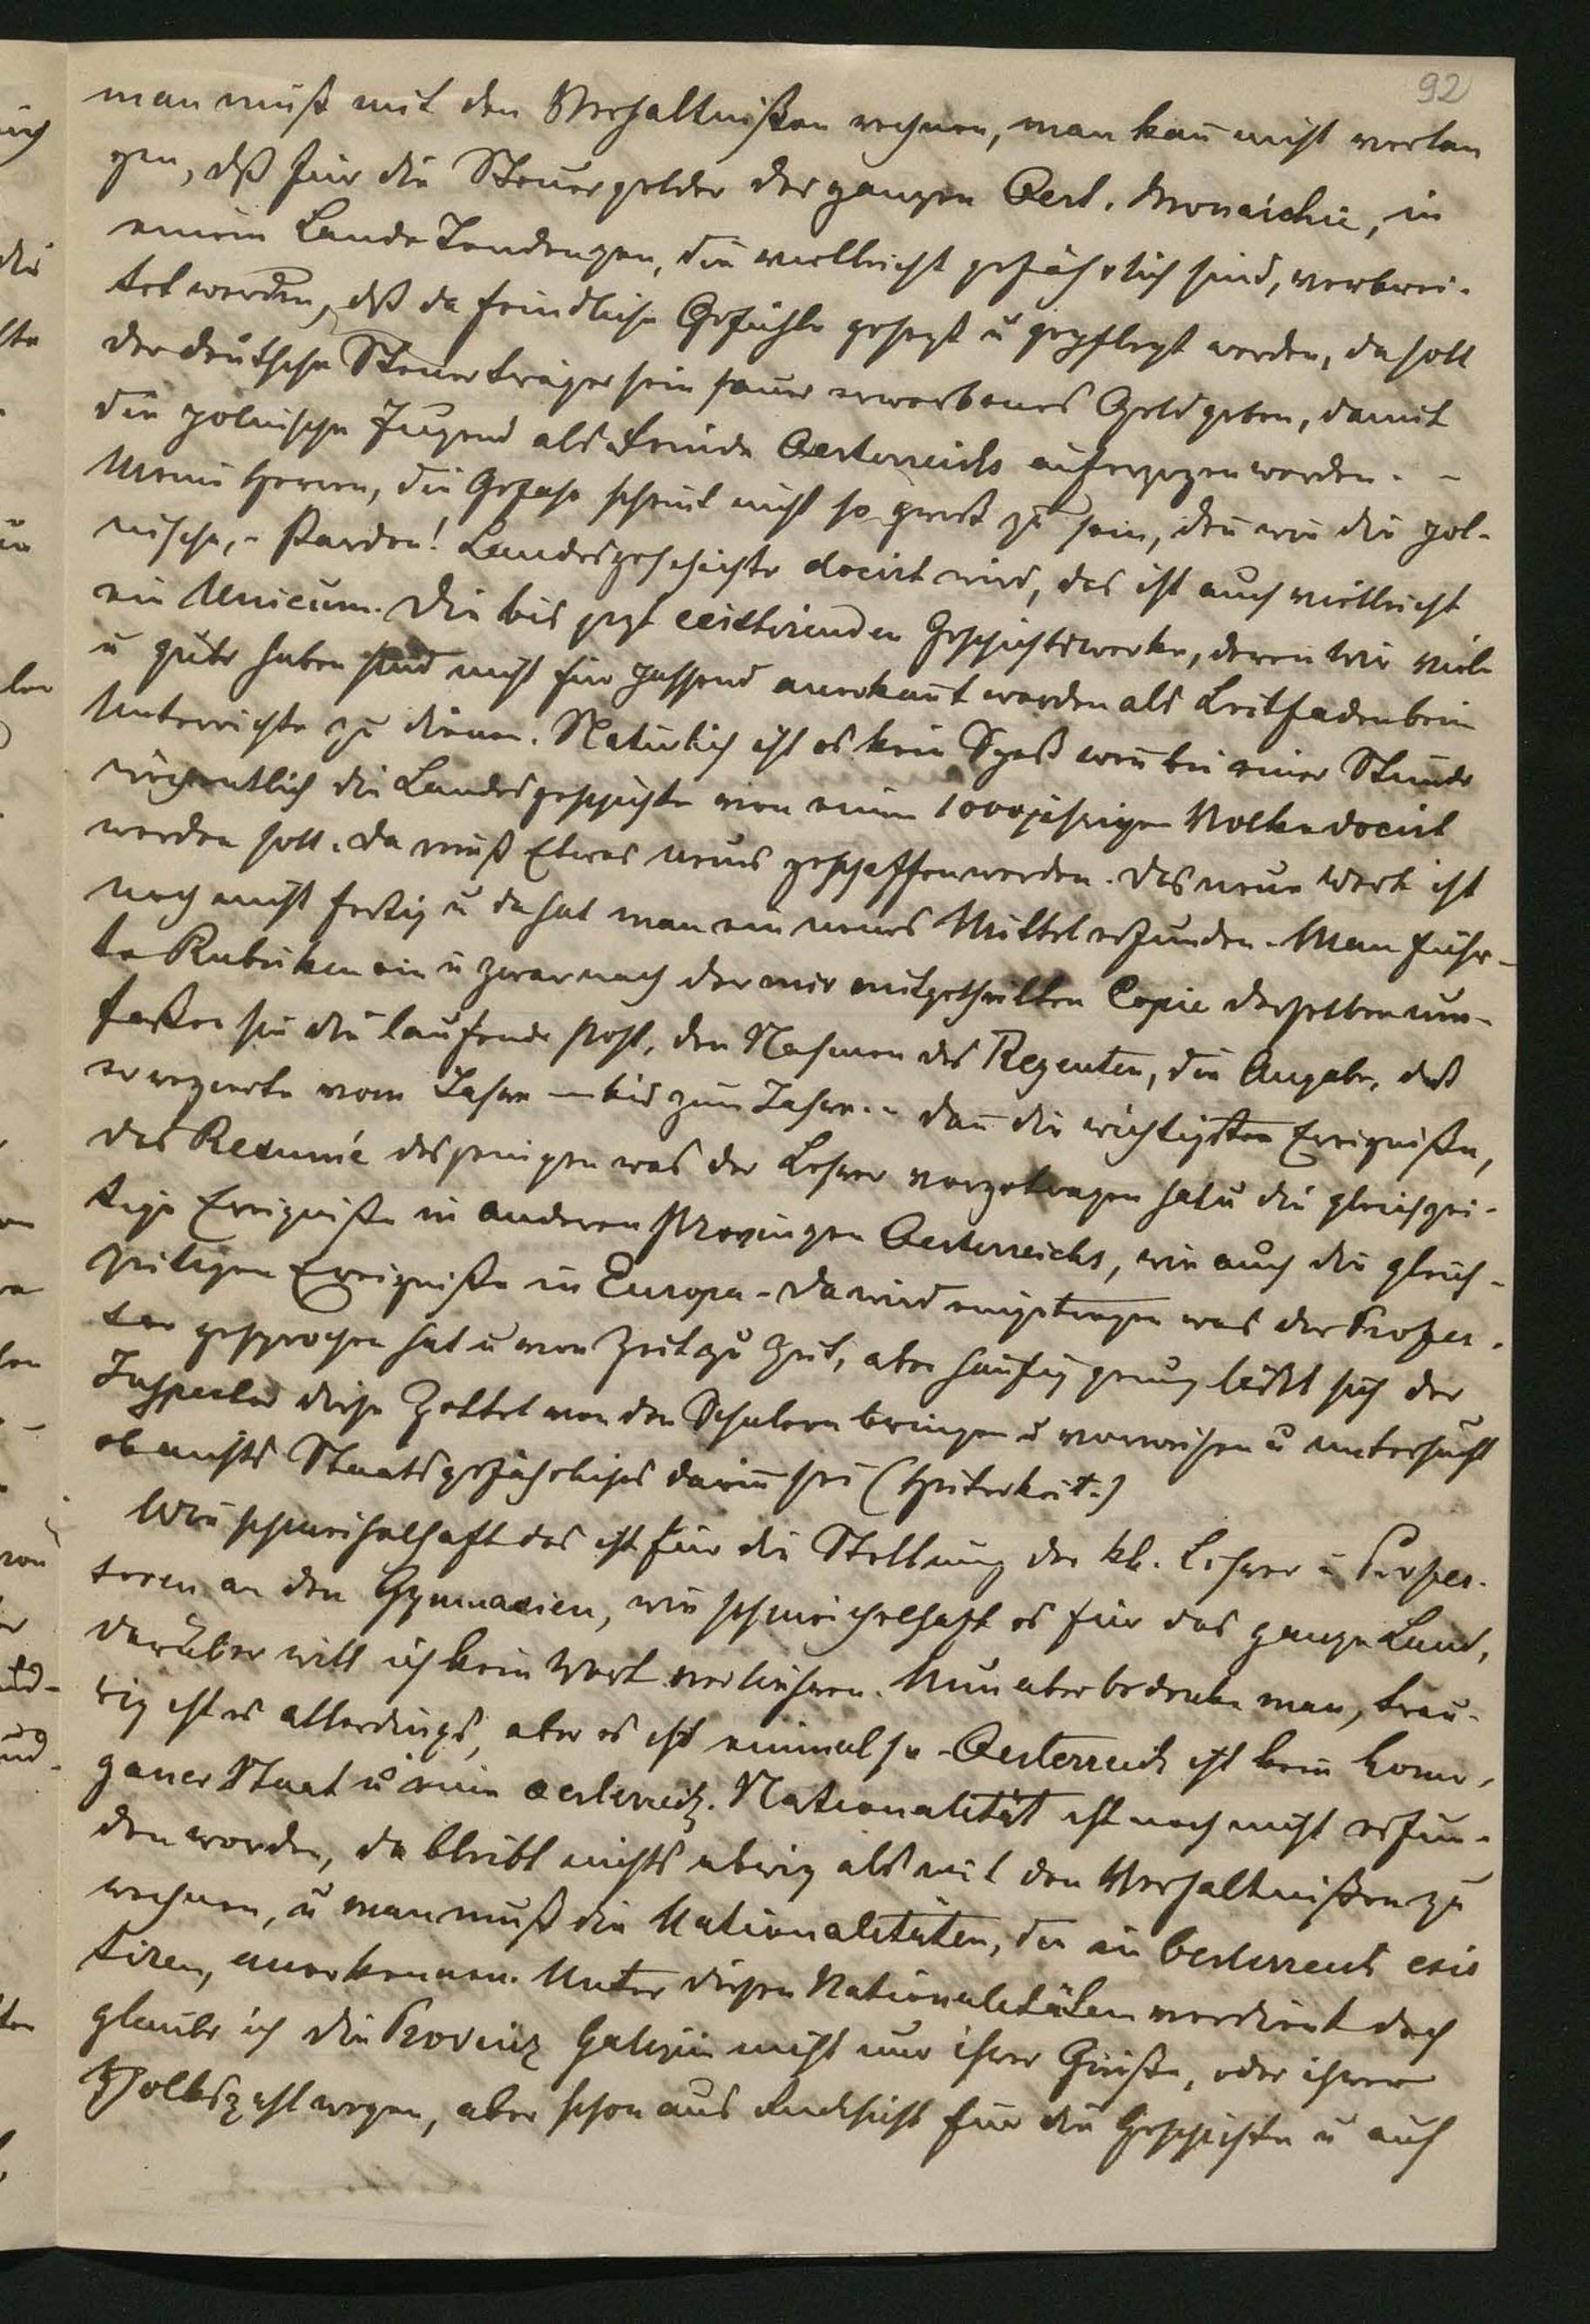 92
man muß mit den Verhältnißen rechnen, man kan̄ nicht verlan
gen, dß für die Steuergelder der ganzen Oest. Monarchie, in
einem Lande Tendenzen, die vielleicht gefährlich sind, verbrei-
tet werden, dß da feindliche Gefühle gehegt u gepflegt werden, da soll
der deutsche Steuerträger sein sauer erworbenes Geld geben, damit
die polnische Jugend als Feinde Oesterreichs auferzogen werden. –
Meine Herren, die Gefahr scheint nicht so groß zu sein, den̄ wie die pol-
nische, – Pardon! Landesgeschichte docirt wird, das ist auch vielleicht
ein Unicum. Die bis jezt existirenden Geschichtswerke, deren wir viele
u gute haben sind nicht für passend anerkan̄t worden als Leitfaden beim
Unterrichte zu dienen. Natürlich ist es kein Spaß wen̄ bei einer Stunde
wöchentlich die Landesgeschichte von einem 1000jährigen Volke docirt
werden soll. da muß Etwas neues geschaffen werden. Das neue Werk ist
noch nicht fertig u da hat man ein neues Mittel erfunden. Man führ-
te Rubriken ein u zwar nach der mir mitgetheilten Copie derselben um-
faßen sie die laufende Post, den Nahmen des Regenten, die Angabe, daß
er regierte vom Jahre – bis zum Jahre.. – dan̄ die wichtigsten Ereigniße,
das Resumé desjenigen was der Lehrer vorgetragen hat u die gleichzei-
tige Ereigniße in anderen Provinzen Oesterreichs, wie auch die gleich-
zeitigen Ereigniße in Europa – da wird eingetragen was der Profes-
sor gesprochen hat u von Zeit zu Zeit, aber häufig genug läßt sich der
Inspector diese Zettel von den Schülern bringen u vorweisen u untersucht
ob nichts Staatsgefährliches darin̄ sei (Heiterkeit.)
Wie schmeichelhaft das ist für die Stellung der kk. Lehrer u Profes-
soren an den Gymnasien, wie schmeichelhaft es für das ganze Land,
darüber will ich kein Wort verliehren. Nun aber bedenke man, trau-
rig ist es allerdings, aber es ist einmal so – Oesterreich ist kein homo-
gener Staat u eine oesterreich. Nationalität ist noch nicht erfun-
den worden, da bleibt nichts übrig als mit den Verhältnißen zu
rechnen, u man muß die Nationalitäten, die in Oesterreich exis
tiren, anerkennen. Unter diesen Nationalitäten verdient doch
glaube ich die Provinz Galizien nicht nur ihrer Größe, oder ihrer
Volkszahl wegen, aber schon aus Rücksicht für die Geschichte u auf